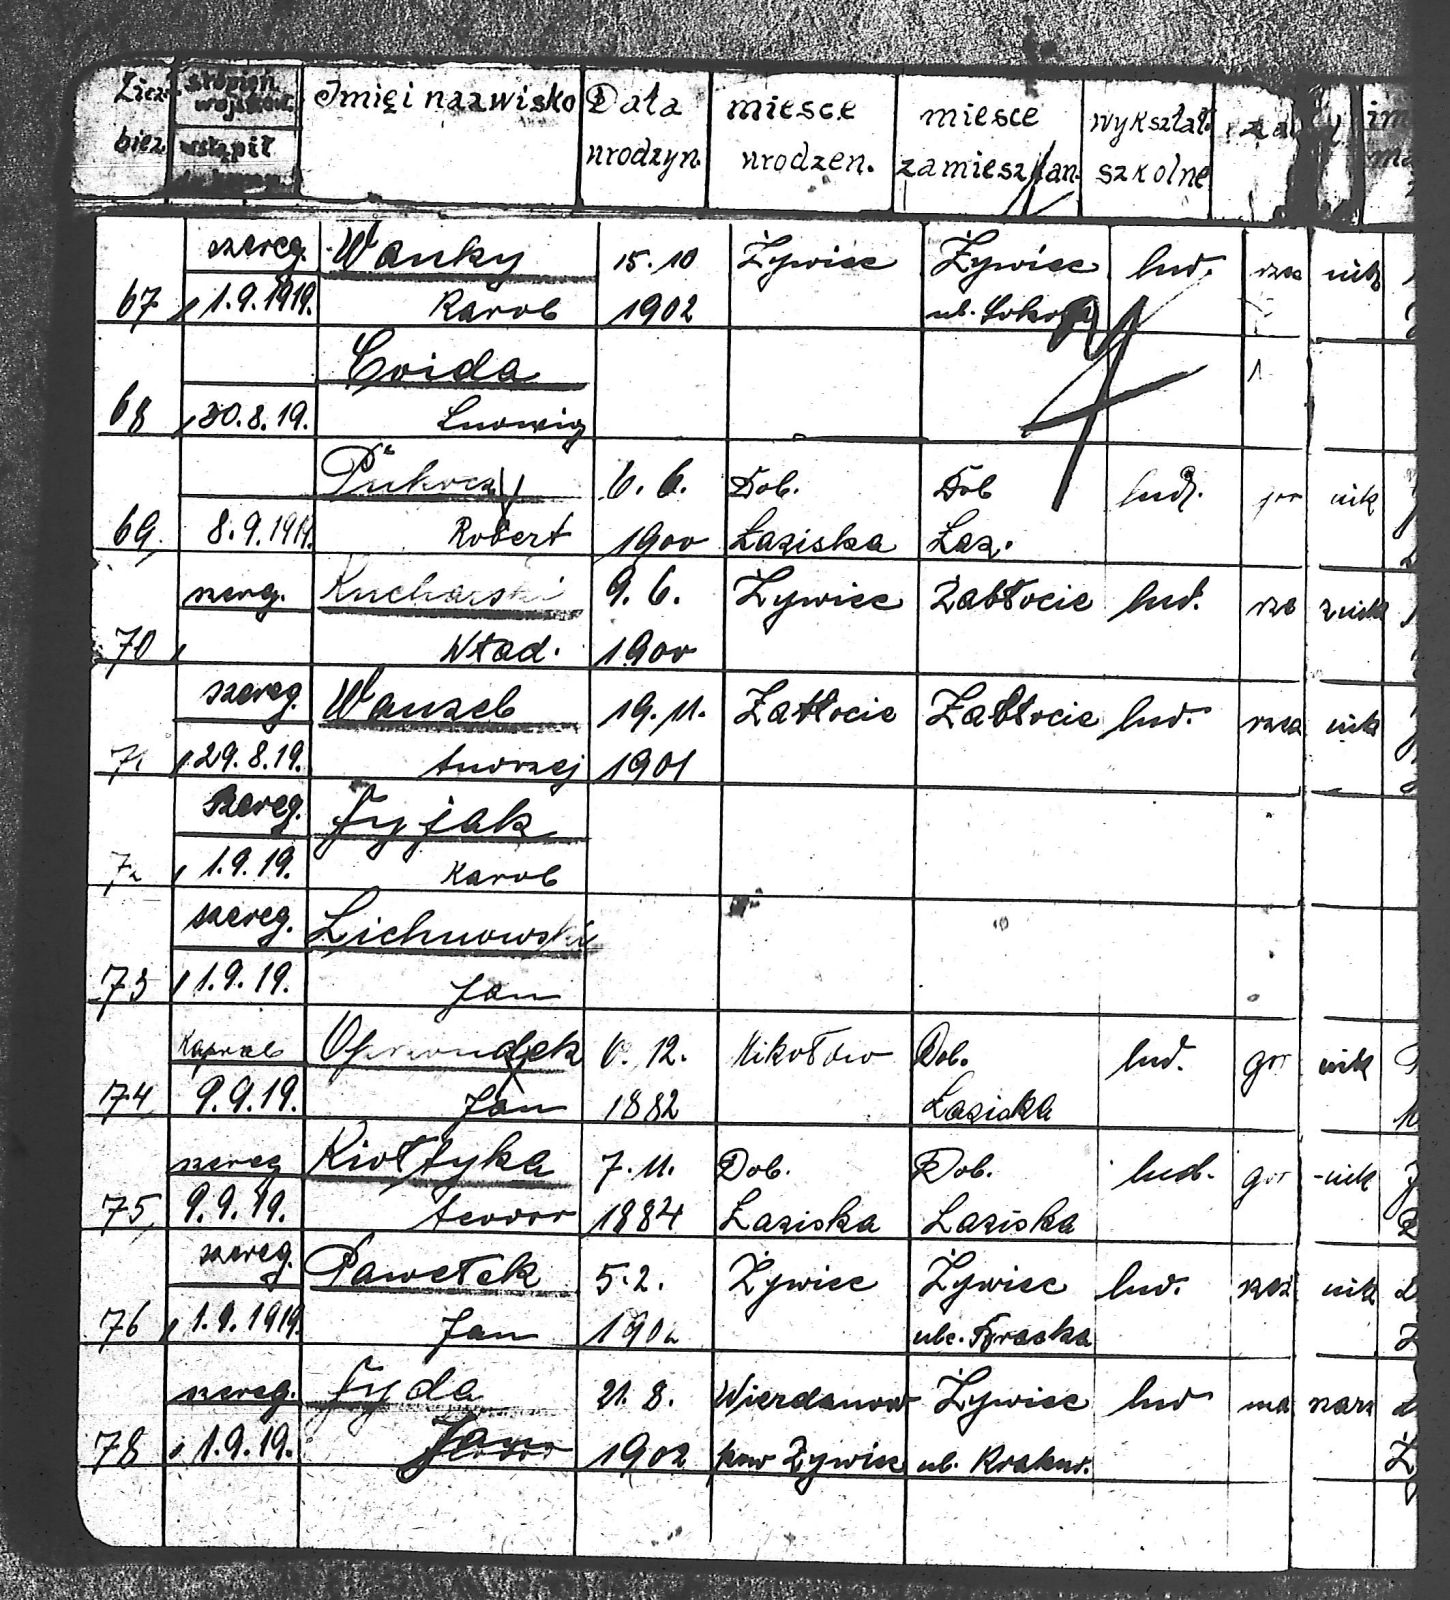 Licz. stopień wojskow. Imię i nazwisko Data miesce miesce wykształ.
bież. wstąpił urodzyn. urodzen. zamieszkan. szkolne
szereg. Wanky 15.10 Żywiec Żywiec lud. nik
67 1.9.1919. Karol 1902 ul.
Coida
68 30.8.19. Ludwig
6.6. Dob. Dob ludz. nik
69. 8.9.1919. Robert 1900 Łaziska Łaz.
szereg. Kucharski 9.6. Żywiec Zabłocie lud.
70 Wład. 1900
szereg. Wanzel 19.11. Zabłocie Zabłocie lud. nik
71 29.8.19. Andrzej 1901
szereg. Fyjak
72 1.9.19. Karol
szereg. Lichnowski
73 1.9.19. Jan
Kapral 6.12. Mikołów Dob. lud. gór nik
74 9.9.19. Jan 1882 Łaziska
szereg Kiołtyka 7.11. Dob. Dob. lud. gór -nik
75 9.9.19. Teodor 1884 Łaziska Łaziska
szereg. Pawełek 5.2. Żywiec Żywiec lud. nik
76 1.9.1919. Jan 1902
szereg. Fyda 21.8. Żywiec lud
78 1.9.19. 1902 pow Żywiec ul. Krakow.